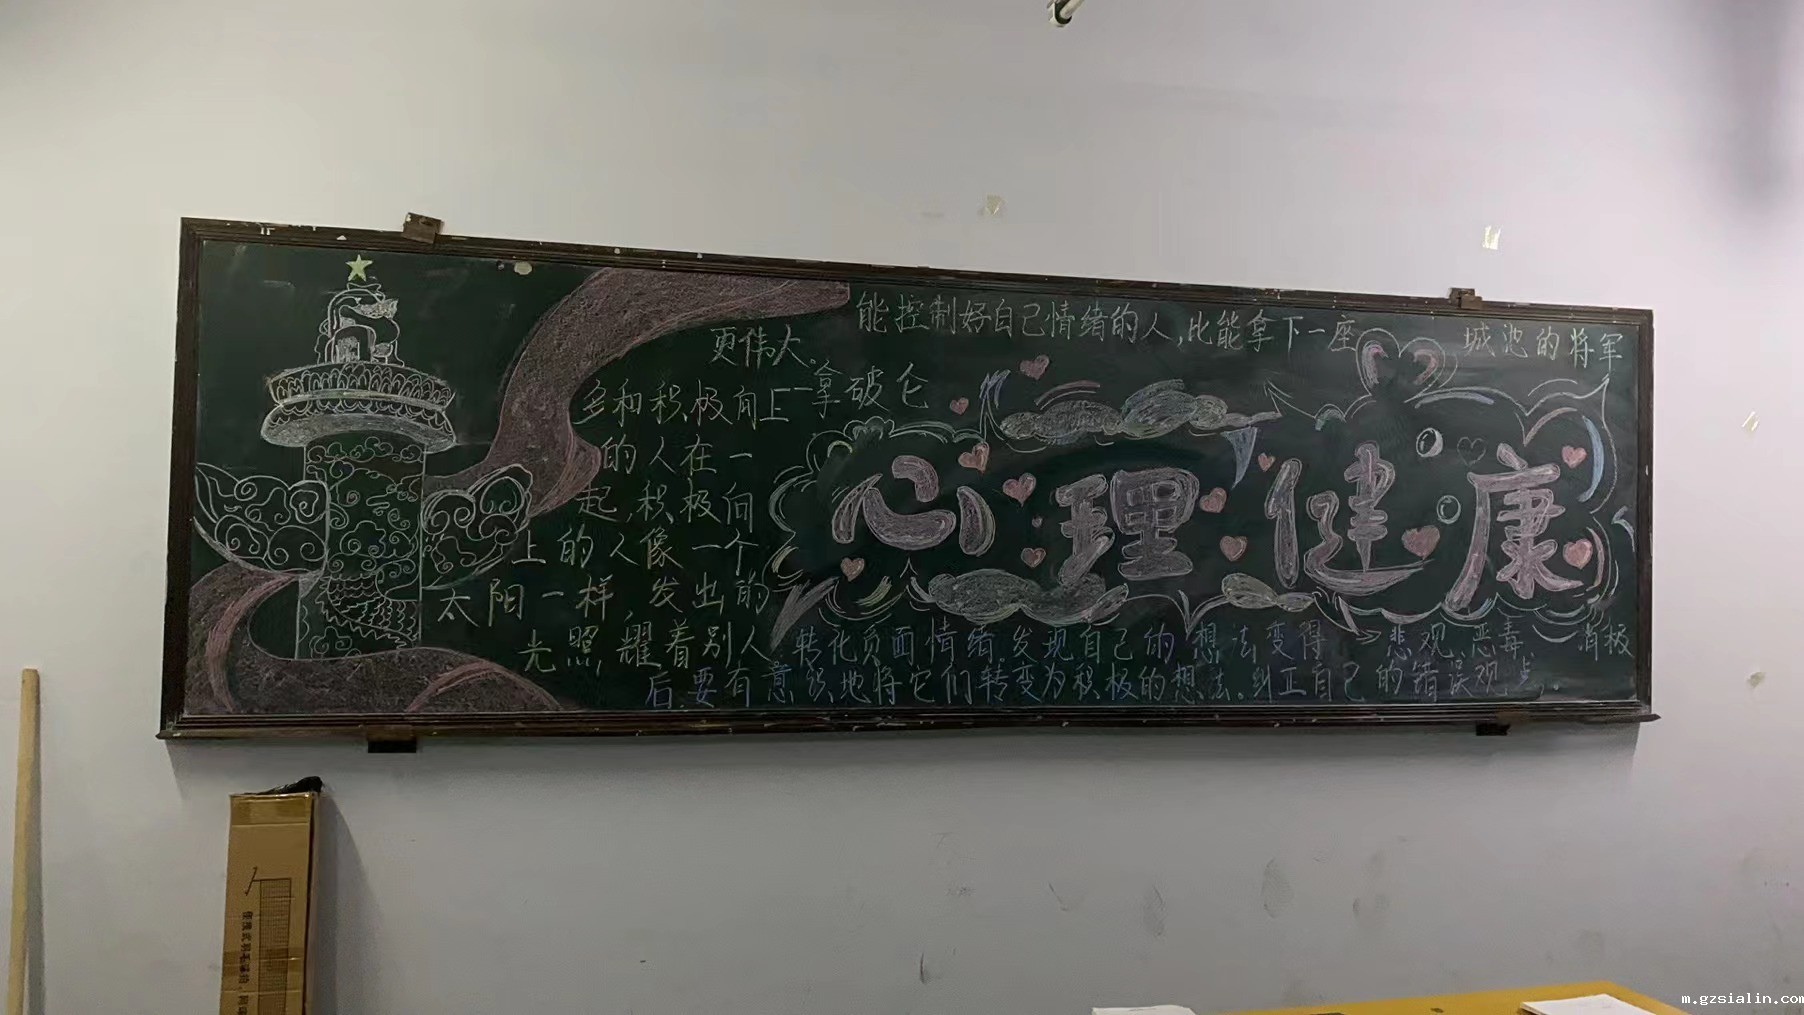 能控制好自己情绪的人,比能拿下一座城池的将军
更伟大。
——拿破仑
多和积极向上
的人在一
起,积极向
上的人像一个
太阳一样,发出的
光照耀着别人
心理健康
转化负面情绪 发现自己的想法变得悲观、恶毒、消极
后,要有意识地将它们转变为积极的想法。纠正自己的错误观点。
m.gzsialin.com